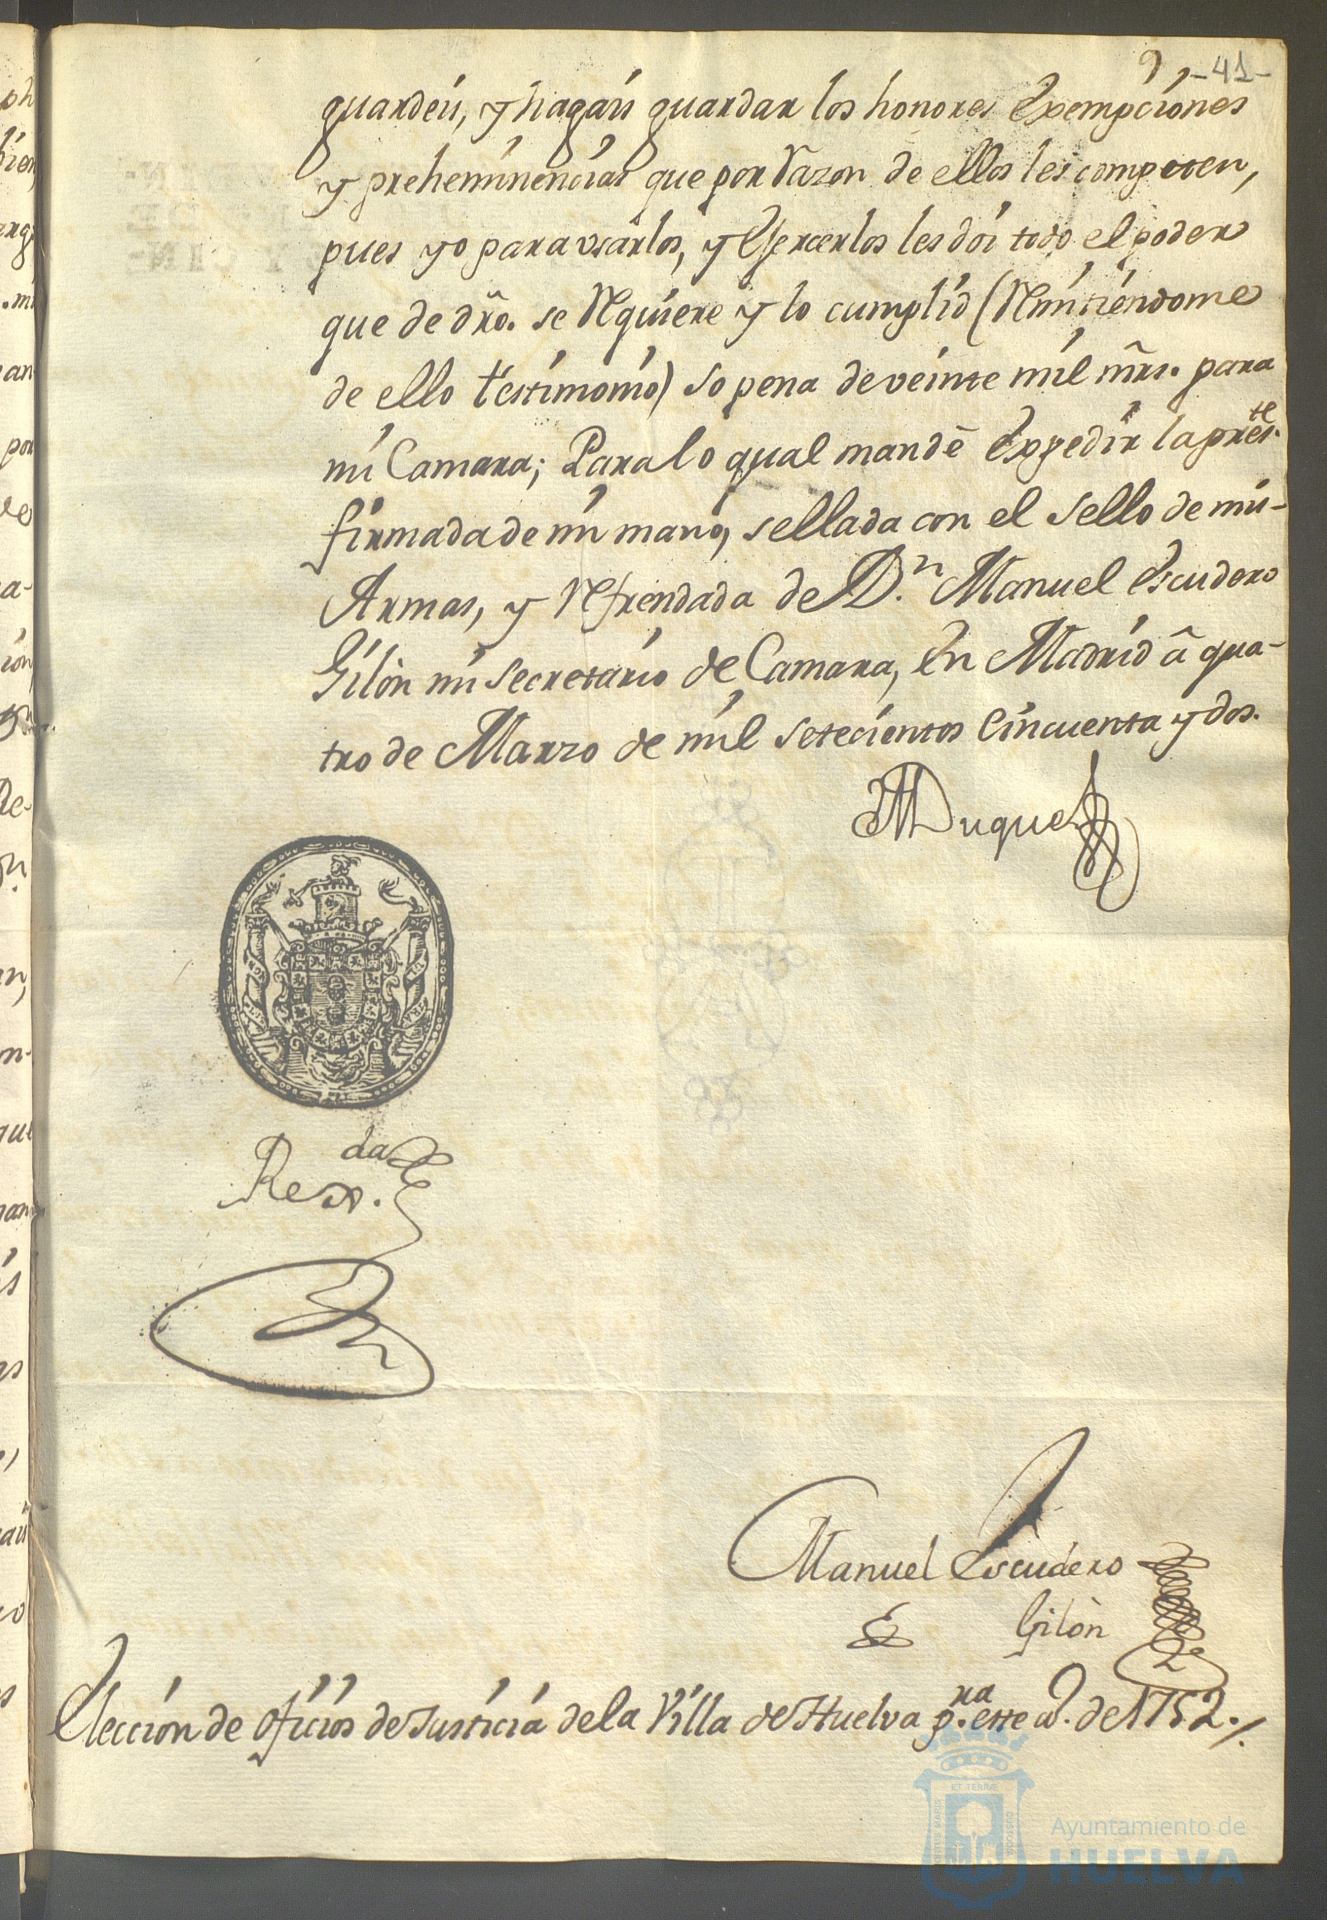 -41-
guardeis, y hagais guardar los honores Exempciones
y preheminencias que por Razon de ellos les competen,
pues yo para usarlos, y Exercerlos les doi todo el poder
que de dro. se Requiere y lo cumplid (Remitiendome
de ello testimonio) so pena de veinte mil mrs. para
mi Camara; Para lo qual mandè Expedir la preste.
firmada de mi mano, sellada con el sello de mis
Armas, y Refrendada de Dn. Manuel Escudero
Gilòn mi secretario de Camara, En Madrid â qua-
tro de Marzo de mil setecientos Cinquenta y dos.
El Duque
Rexda.
Manuel Escudero
Gilòn
Elección de oficios de Justicia de la Villa de Huelva pra. este a. de 1752./.
ET TERRAE
Ayuntamiento de
HUELVA